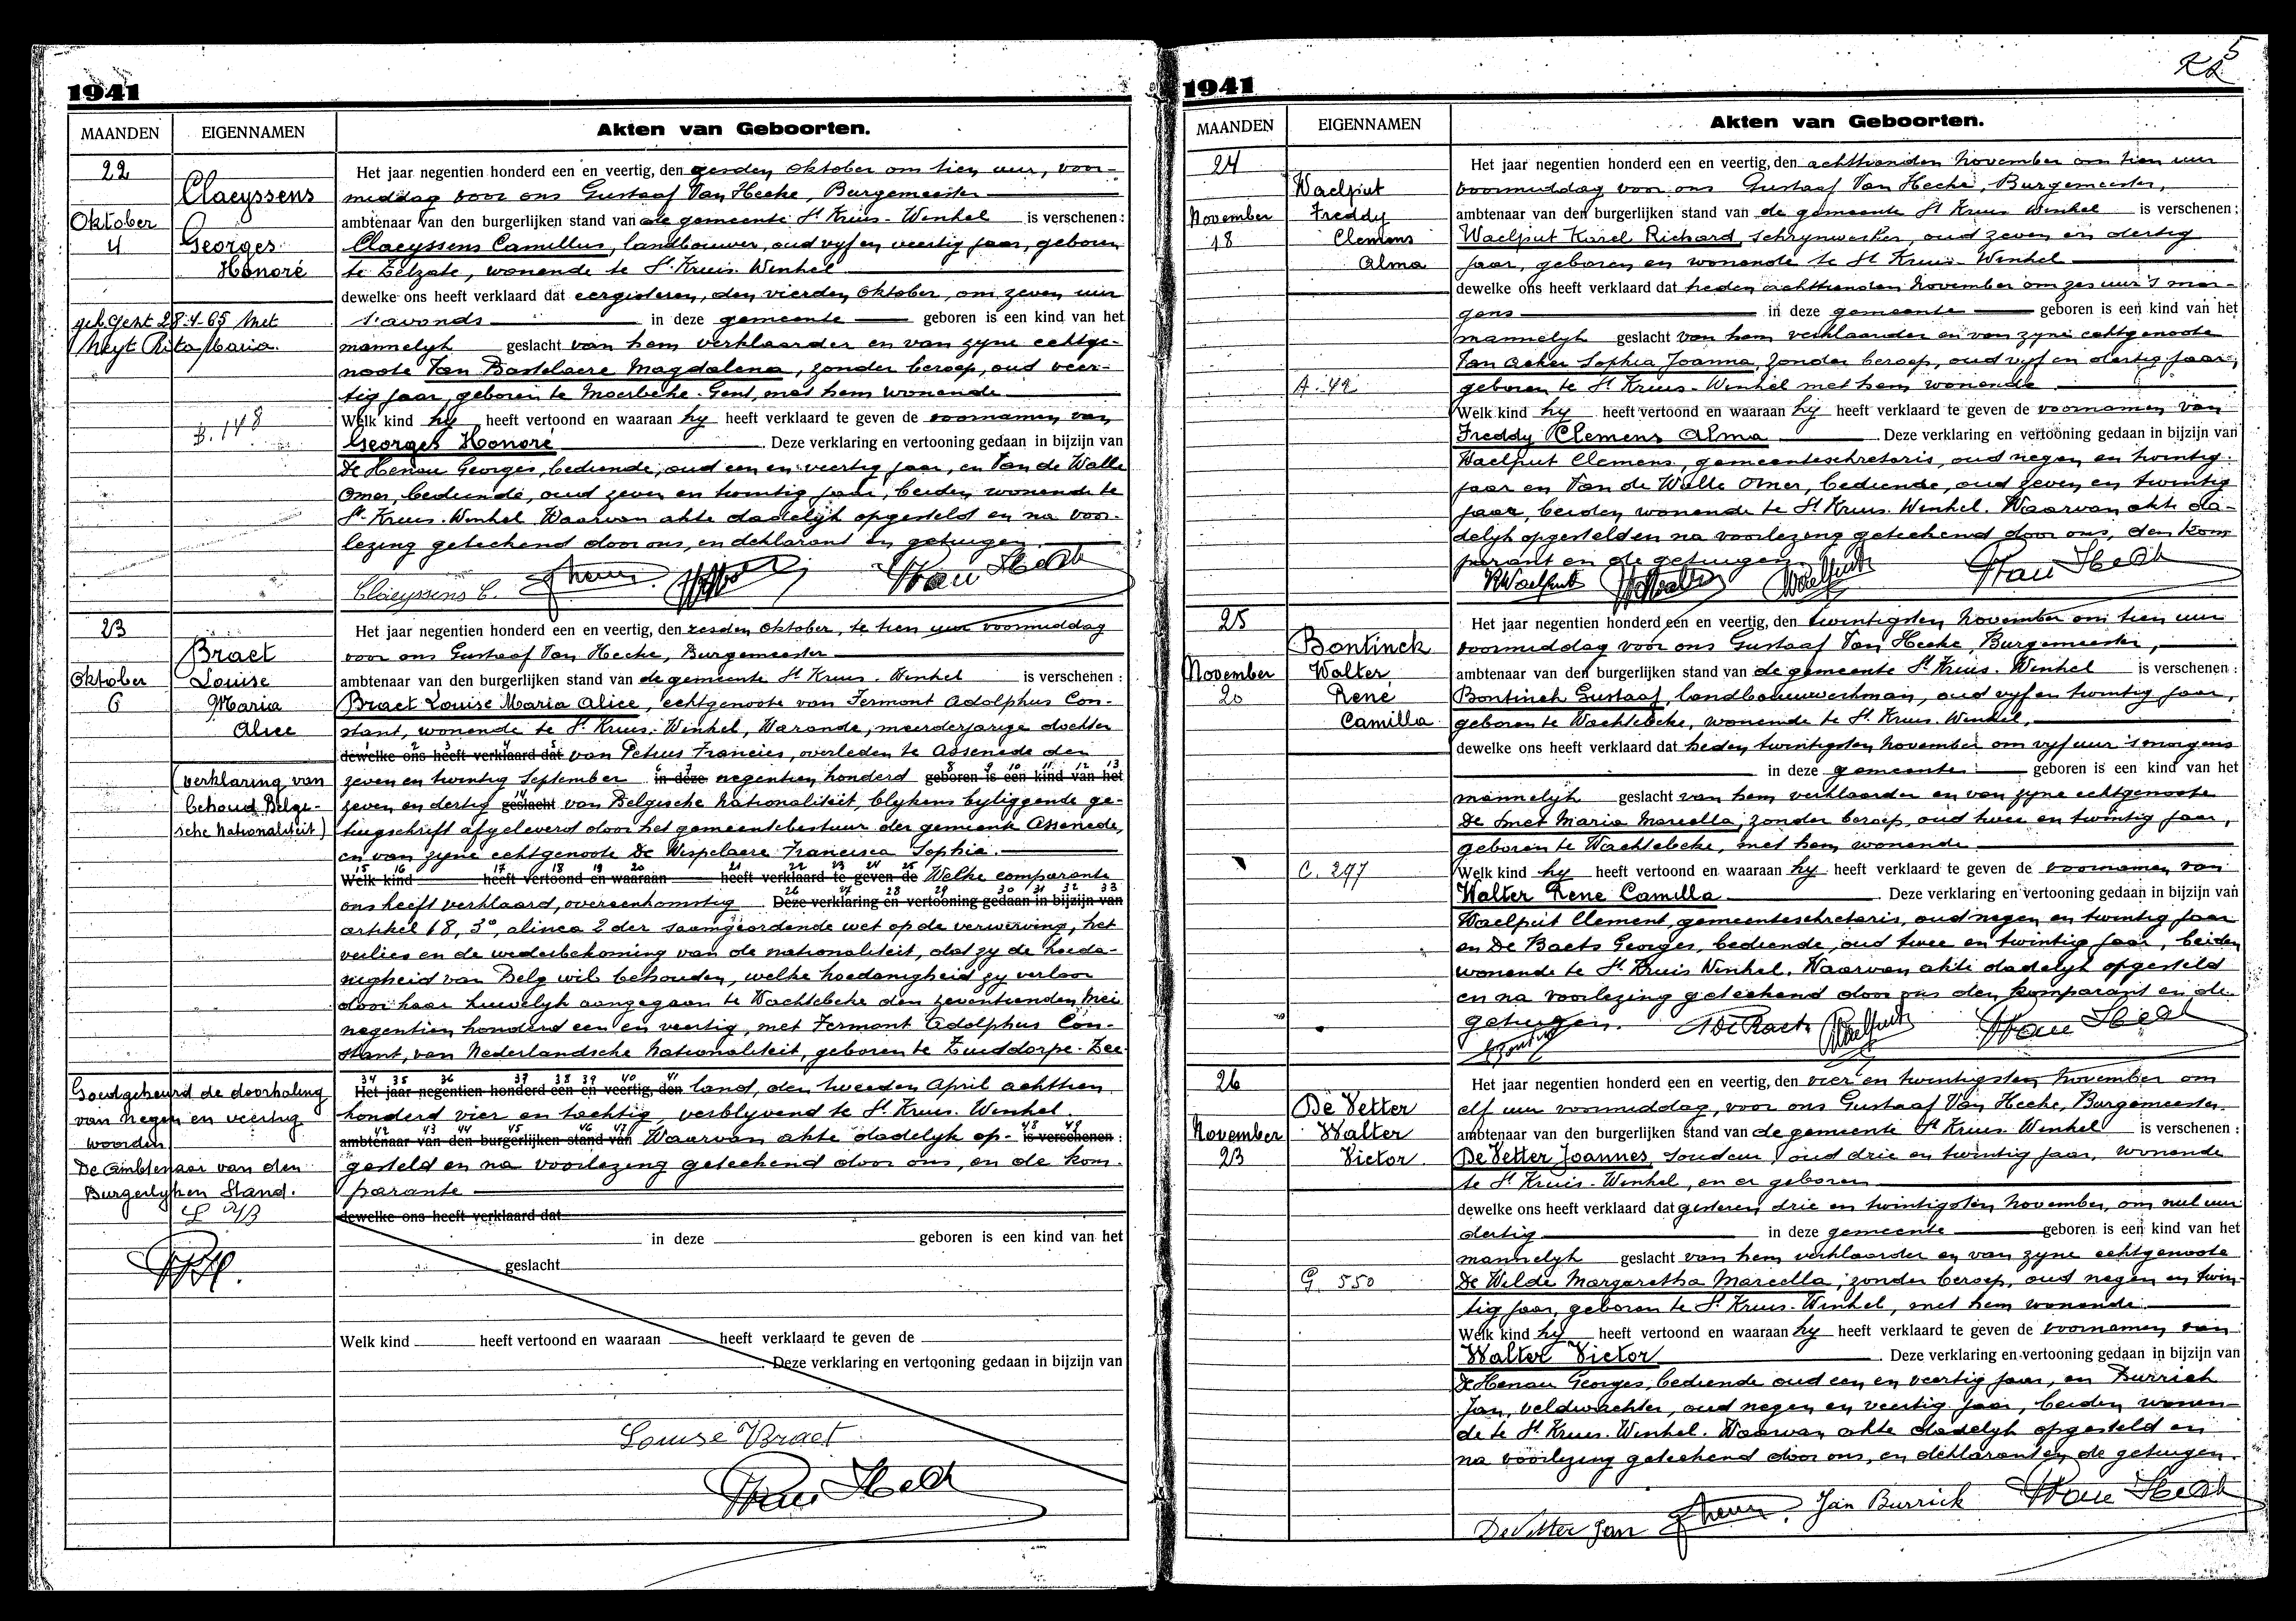 1941
MAANDEN EIGENNAMEN Akten van Geboorten.
22
Claeyssens
Oktober
4 Georges
Honoré
geh. Gent 28-4-65 met
Neyt Rita Maria.
B. 148
Het jaar negentien honderd een en veertig, den zesden Oktober om tien uur, voor-
middag voor ons Gustaaf Van Hecke, Burgemeester
ambtenaar van den burgerlijken stand van de gemeente St Kruis-Winkel is verschenen:
Claeyssens Camillus, landbouwer, oud vyf en veertig jaar, geboren
te Zelzate, wonende te St. Kruis-Winkel
dewelke ons heeft verklaard dat eergisteren, den vierden Oktober, om zeven uur
's avonds in deze gemeente geboren is een kind van het
mannelyk geslacht van hem verklaarder en van zyne echtge-
noote Van Bastelaere Magdalena, zonder beroep, oud veer-
tig jaar, geboren te Moerbeke-Gent, met hem wonende
Welk kind hy heeft vertoond en waaraan hy heeft verklaard te geven de voornamen van
Georges Honoré Deze verklaring en vertooning gedaan in bijzijn van
De Henau Georges, bediende, oud een en veertig jaar, en Van de Walle
Omer, bediende, oud zeven en twintig jaar, beiden wonende te
St. Kruis-Winkel Waarvan akte dadelyk opgesteld en na voor-
lezing geteekend door ons, en deklarant en getuigen.
Claeyssens C.
23
Braet
Oktober Louise
6 Maria
Alice
(verklaring van
behoud Belgi-
sche Nationaliteit)
Het jaar negentien honderd een en veertig, den zesden Oktober, te tien uur voormiddag
voor ons Gustaaf Van Hecke, Burgemeester
ambtenaar van den burgerlijken stand van de gemeente St Kruis-Winkel is verschenen:
Braet Louise Maria Alice, echtgenoote van Fermont Adolphus Con-
stant, wonende te St. Kruis-Winkel, Warande, meerderjarige dochter
1 2 3 4 5
dewelke ons heeft verklaard dat van Petrus Francies, overleden te Assenede den
6 7 8 9 10 11 12 13
zeven en twintig September in deze negentien honderd geboren is een kind van het
14
zeven en dertig geslacht van Belgische Nationaliteit, blykens byliggende ge-
tuigschrift afgeleverd door het gemeentebestuur der gemeente Assenede,
en van zyne echtgenoote De Wispelaere Francisca Sophia.
15 16 17 18 19 20 21 22 23 24 25
Welk kind heeft vertoond en waaraan heeft verklaard te geven de Welke comparante
26 27 28 29 30 31 32 33
ons heeft verklaard, overeenkomstig Deze verklaring en vertooning gedaan in bijzijn van
artikel 18, 3°, alinea 2 der saamgeordende wet op de verwerving, het
verlies en de wederbekoming van de nationaliteit, dat zy de hoeda-
nigheid van Belg wil behouden, welke hoedanigheid zy verloor
door haar huwelyk aangegaan te Wachtebeke den zeventienden Mei
negentien honderd een en veertig, met Fermont Adolphus Con-
stant, van Nederlandsche Nationaliteit, geboren te Zuiddorpe-Zee-
Goedgekeurd de doorhaling
van negen en veertig
woorden
De Ambtenaar van den
Burgerlyken Stand.
34 35 36 37 38 39 40 41
Het jaar negentien honderd een en veertig, den land, den tweeden April achttien
honderd vier en tachtig, verblyvend te St. Kruis-Winkel.
42 43 44 45 46 47 48 49
ambtenaar van den burgerlijken stand van Waarvan akte dadelyk op- is verschenen:
gesteld en na voorlezing geteekend door ons, en de kom-
parante
dewelke ons heeft verklaard dat
in deze geboren is een kind van het
geslacht
Welk kind heeft vertoond en waaraan heeft verklaard te geven de
Deze verklaring en vertooning gedaan in bijzijn van
Louise Braet
Van Hecke
5
1941
MAANDEN EIGENNAMEN Akten van Geboorten.
24
Waelput
November Freddy
18 Clemens
Alma
A. 42
Het jaar negentien honderd een en veertig, den achttienden November om tien uur
voormiddag voor ons Gustaaf Van Hecke, Burgemeester,
ambtenaar van den burgerlijken stand van de gemeente St Kruis Winkel is verschenen:
Waelput Karel Richard, schrynwerker, oud zeven en dertig
jaar, geboren en wonende te St Kruis-Winkel
dewelke ons heeft verklaard dat heden achttienden November om zes uur 's mor-
gens in deze gemeente geboren is een kind van het
mannelyk geslacht van hem verklaarder en van zyne echtgenoote
Van Acker Sophia Joanna, zonder beroep, oud vyf en dertig jaar,
geboren te St Kruis-Winkel met hem wonende
Welk kind hy heeft vertoond en waaraan hy heeft verklaard te geven de voornamen van
Freddy Clemens Alma Deze verklaring en vertooning gedaan in bijzijn van
Waelput Clemens, gemeentesekretaris, oud negen en twintig
jaar en Van de Walle Omer, bediende, oud zeven en twintig
jaar, beiden wonende te St Kruis-Winkel. Waarvan akte da-
delyk opgesteld en na voorlezing geteekend door ons, den kom
parant en de getuigen
KRWaelput
25
Bontinck
November Walter
20 Rene
Camilla
C. 297
Het jaar negentien honderd een en veertig, den twintigsten November om tien uur
voormiddag voor ons Gustaaf Van Hecke, Burgemeester,
ambtenaar van den burgerlijken stand van de gemeente St Kruis-Winkel is verschenen:
Bontinck Gustaaf, landbouwwerkman, oud vyf en twintig jaar,
geboren te Wachtebeke, wonende te St. Kruis-Winkel,
dewelke ons heeft verklaard dat heden twintigsten November om vyf uur 's morgens
in deze gemeente geboren is een kind van het
mannelyk geslacht van hem verklaarder en van zyne echtgenoote
De Smet Maria Marcella, zonder beroep, oud twee en twintig jaar,
geboren te Wachtebeke, met hem wonende
Welk kind hy heeft vertoond en waaraan hy heeft verklaard te geven de voornamen van
Walter Rene Camilla Deze verklaring en vertooning gedaan in bijzijn van
Waelput Clement, gemeentesekretaris, oud negen en twintig jaar
en De Baets Georges, bediende, oud twee en twintig jaar, beiden
wonende te St. Kruis Winkel. Waarvan akte dadelyk opgesteld
en na voorlezing geteekend door ons den komparant en de
getuigen.
26
De Vetter
November Walter
23 Victor
G. 550
Het jaar negentien honderd een en veertig, den vier en twintigsten November om
elf uur voormiddag, voor ons Gustaaf Van Hecke, Burgemeester.
ambtenaar van den burgerlijken stand van de gemeente St Kruis-Winkel is verschenen:
De Vetter Joannes, soudeur, oud drie en twintig jaar, wonende
te St Kruis-Winkel, en er geboren
dewelke ons heeft verklaard dat gisteren, drie en twintigsten November, om nul uur
dertig in deze gemeente geboren is een kind van het
mannelyk geslacht van hem verklaarder en van zyne echtgenoote
De Wilde Margaretha Marcella, zonder beroep, oud negen en twin-
tig jaar, geboren te St Kruis-Winkel, met hem wonende
Welk kind hy heeft vertoond en waaraan hy heeft verklaard te geven de voornamen van
Walter Victor Deze verklaring en vertooning gedaan in bijzijn van
De Henau Georges, bediende oud een en veertig jaar, en Burrick
Jan, veldwachter, oud negen en veertig jaar, beiden wonen-
de te St. Kruis-Winkel. Waarvan akte dadelyk opgesteld en
na voorlezing geteekend door ons, en deklarant en de getuigen.
De Vetter Jan Jan Burrick Van Hecke